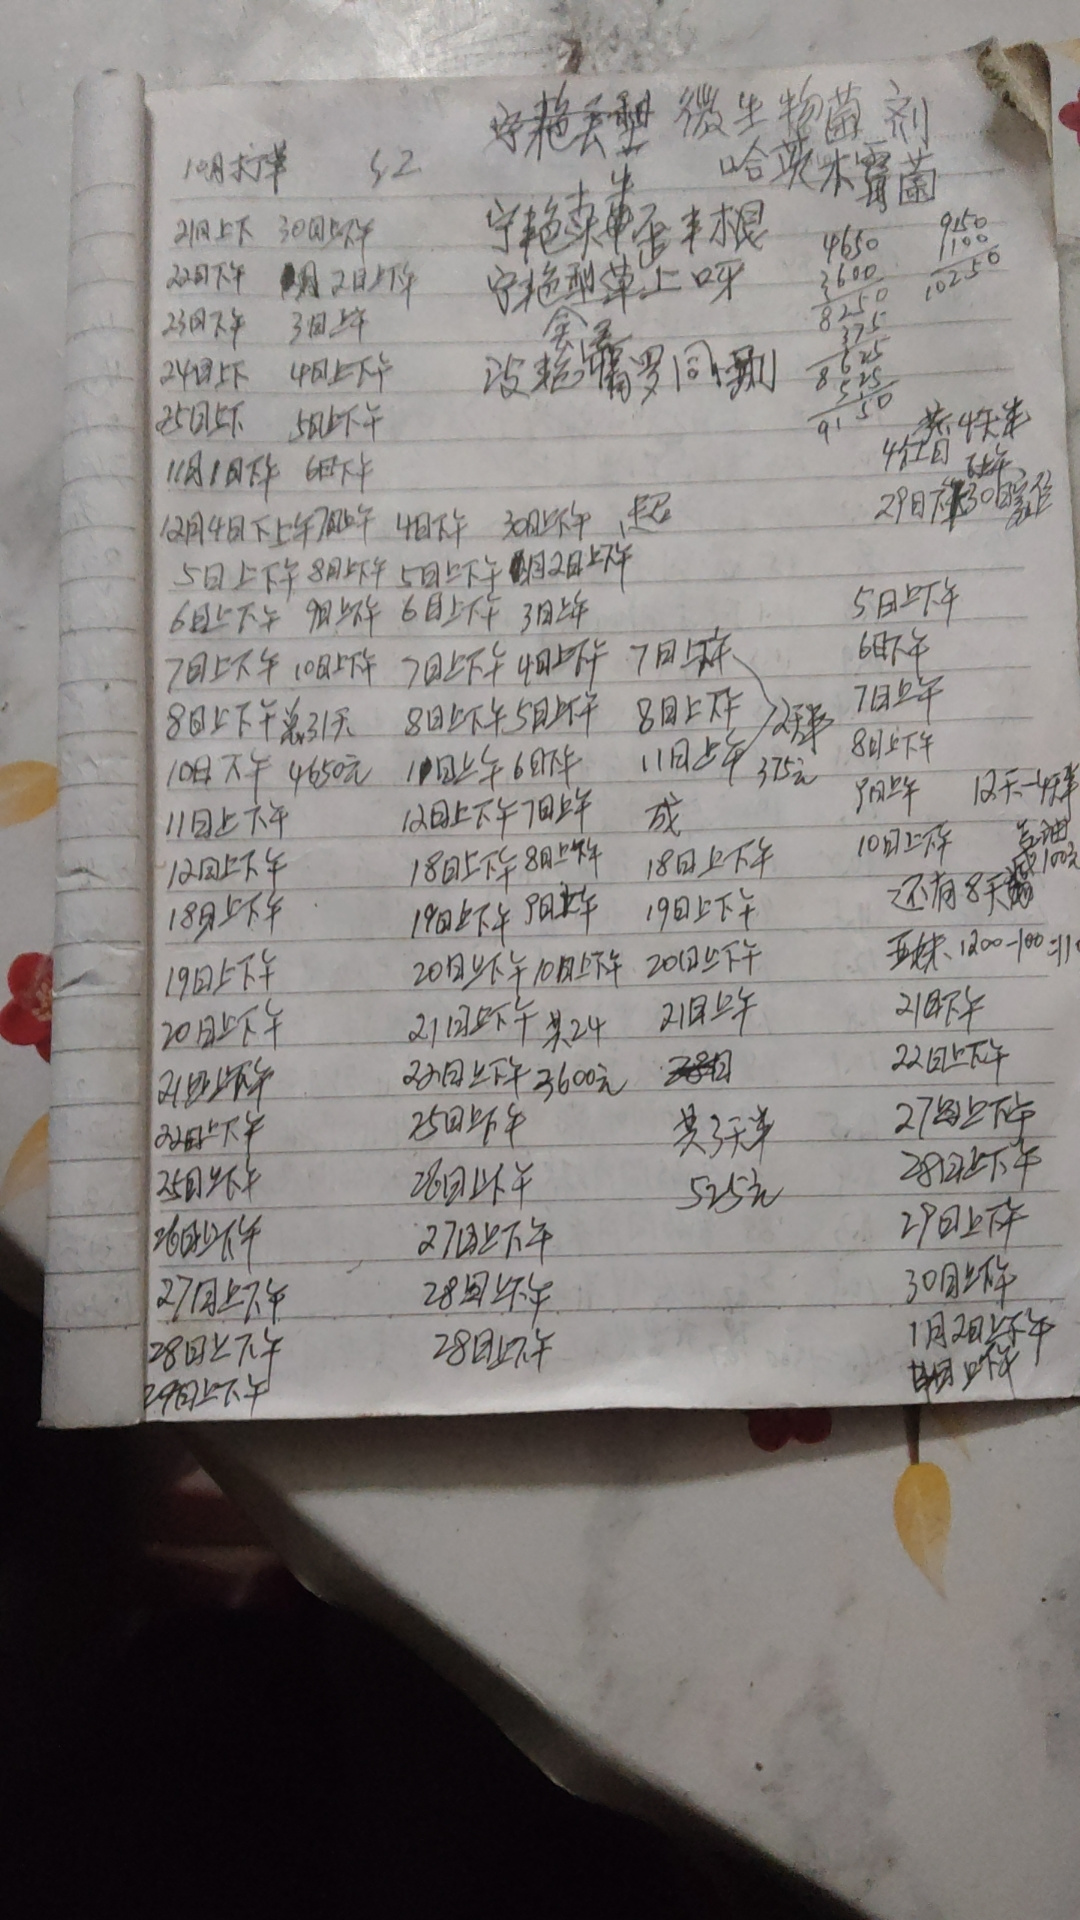 微生物菌剂
10月 红
哈茨木霉菌
21日上下 30日上下午
4650 9150
22日下午 月2日上下午
3600 100
8250 10250
23日下午 3日上午
375
24日上下 4日上下午
8625
525
25日上下 5日上下午
9150
共4天半
11月1日下午 6日下午
29日下午 30日
12月4日下上午 7日上午 4日下午 30日上下午 超
5日上下午 8日上下午 5日上下午 月2日上下午
6日上下午 9日上下午 6日上下午 3日上午 5日上下午
7日上下午 10日上下午 7日上下午 4日上下午 7日上下午 6日下午
8日上下午 总31天 8日上下午 5日上下午 8日上下午 2天半 7日上午
10日下午 4650元 11日上午 6日下午 11日上午 375元 8日上下午
11日上下午 12日上下午 7日上午 成 9日上午 12天-4天半
12日上下午 18日上下午 8日上下午 18日上下午 10日上下午 100元
18日上下午 19日上下午 9日上午 19日上下午 还有8天
19日上下午 20日上下午 10日上下午 20日上下午 1200-100=11
20日上下午 21日上下午 共24 21日上午 21日下午
21日上下午 22日上下午 3600元 22日上下午
22日上下午 25日上下午 共3天半 27日上下午
25日上下午 26日上下午 525元 28日上下午
26日上下午 27日上下午 29日上下午
27日上下午 28日上下午 30日上下午
28日上下午 28日上下午 1月2日上下午
29日上下午 4日上下午